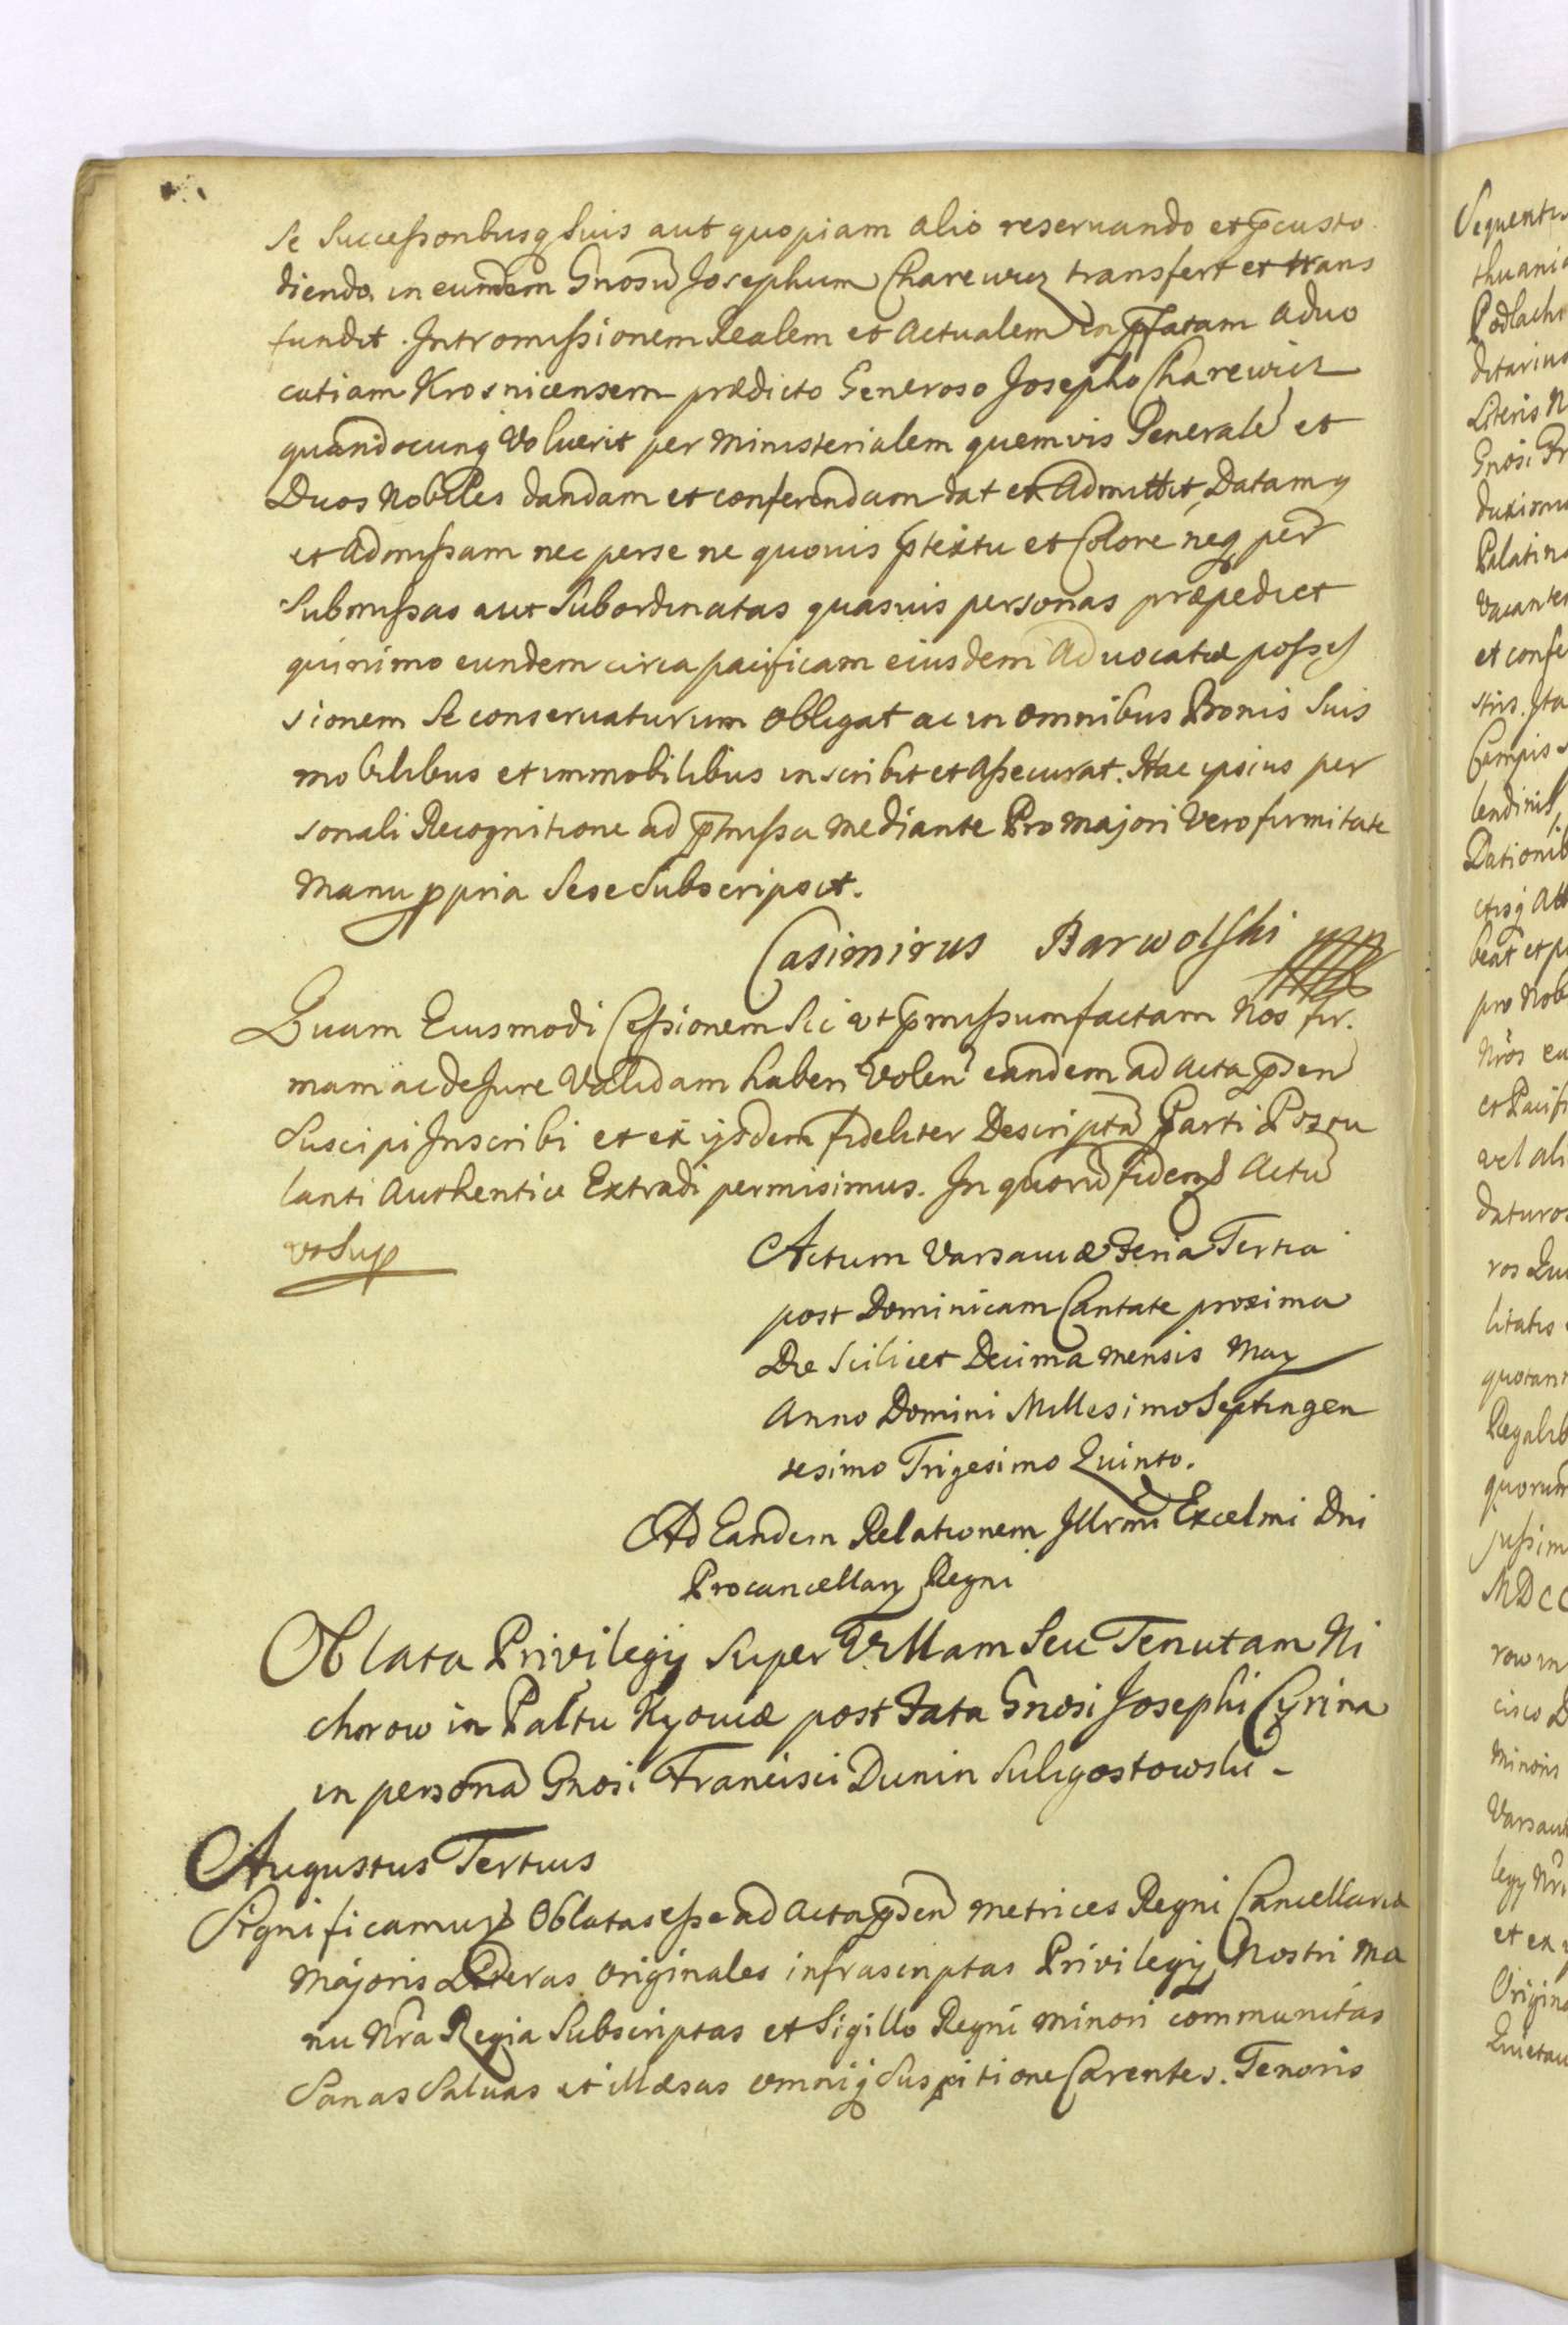 Se Successoribusq Suis aut quopiam alio reseruando et pcusto
diendo in eundem Gnosu Josephum Charewicz transfert et trans
fundit. Intromissionem Realem et Actualem in pfatam aduo
catiam Krosnicensem prædicto Generoso Josepho Charewicz
quandocunq Voluerit per Ministerialem quemvis Generale et
Duos Nobiles dandam et conferendam dat et Admittit, Datamq
et Admissam nec per se ne quouis ptextu et Colore neq per
Submissas aut Subordinatas quasuis personas præpediet
quinimo eundem circa pacificam eiusdem Aduocatiæ posses
sionem Se conseruaturum Obligat ac in Omnibus Bonis Suis
mobilibus et immobilibus inscribit et Assecurat. Hac ipsius per
sonali Recognitione ad pmissa Mediante Pro Majori Vero firmitate
Manu ppria Sese Subscripsit.
Casimirus Barwolski mpp
Quam Eiusmodi Cessionem Sic ut pmissum factam Nos fir.
mam ac de Jure Validam haberi Volen eandem ad Acta psen
Suscipi Inscribi et ex ijsdem fideliter Descripta Parti Postu
lanti Authentice Extradi permisimus. In quoru fidem Actu
ut Sup
Actum Varsauiæ Feria Tertia
post Dominicam Cantate proxima
Die Scilicet Decima mensis May
Anno Domini Millesimo Septingen
tesimo Trigesimo Quinto.
Ad Eandem Relationem Illrmi Excelmi Dni
Procancellary Regni
Oblata Privilegij Super Villam Seu Tenutam Ni
chorow in Paltu Kyouiæ post Fata Gnosi Josephi Cyrina
in persona Gnosi Francisci Dunin Suligostowski -
Augustus Tertius
Significamus Oblatas esse ad Acta psen Metrices Regni Cancellariæ
Majoris Literas Originales infrascriptas Privilegij Nostri Ma
nu Nra Regia Subscriptas et Sigillo Regni Minori communitas
Sanas Saluas et illæsas omniq Suspitione Carentes. Tenoris